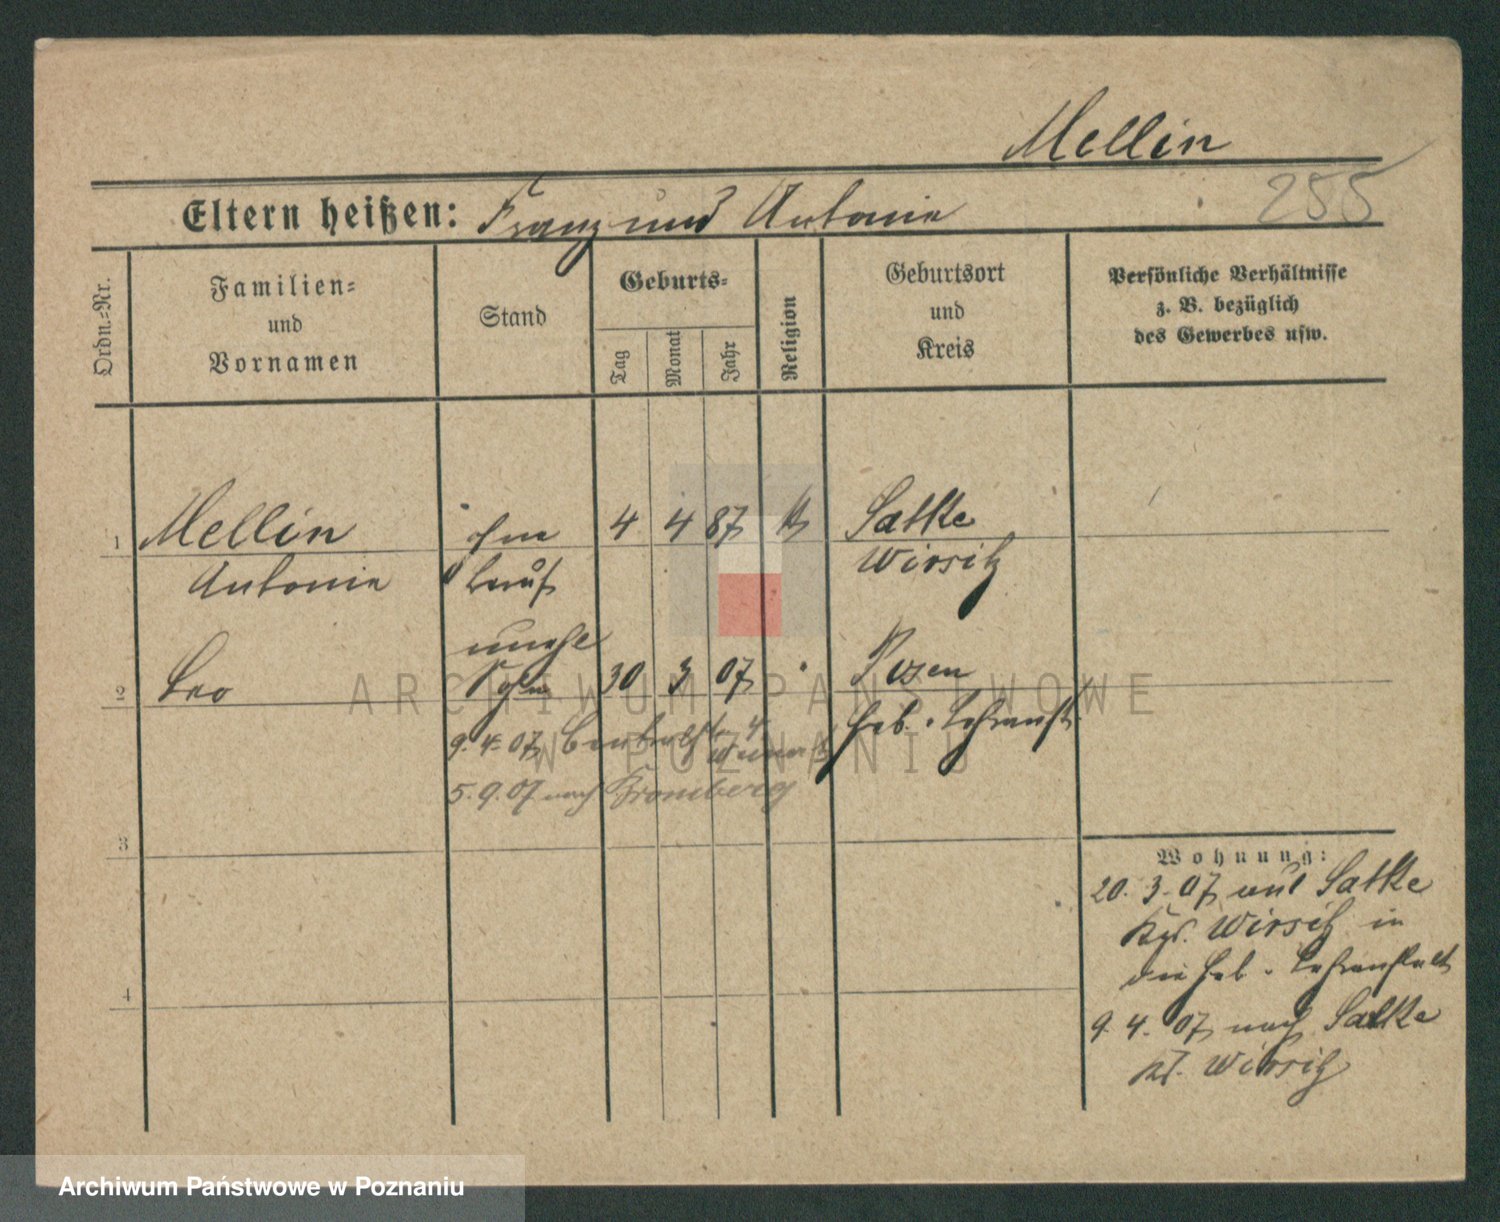 Mellin
255
Eltern heißen: Franz und Antonie
Ordn.=Nr.
Familien=
und
Vornamen
Stand
Geburts=
Tag
Monat
Jahr
Religion
Geburtsort
und
Kreis
Persönliche Verhältnisse
z. B. bezüglich
des Gewerbes usw.
1 Mellin ohne 4 4 87 k Satke
Antonie Beruf Wirsitz
unehl
2 Leo Sohn 30 3 07 Posen
Heb. Lehranst.
9.4.07
5.9.07 nach Bromberg
3
4
Wohnung:
20. 3. 07 aus Satke
Krs. Wirsitz in
die Heb. Lehranstalt
9. 4. 07 nach Satke
Kr. Wirsitz
ARCHIWUM PAŃSTWOWE
W POZNANIU
Archiwum Państwowe w Poznaniu